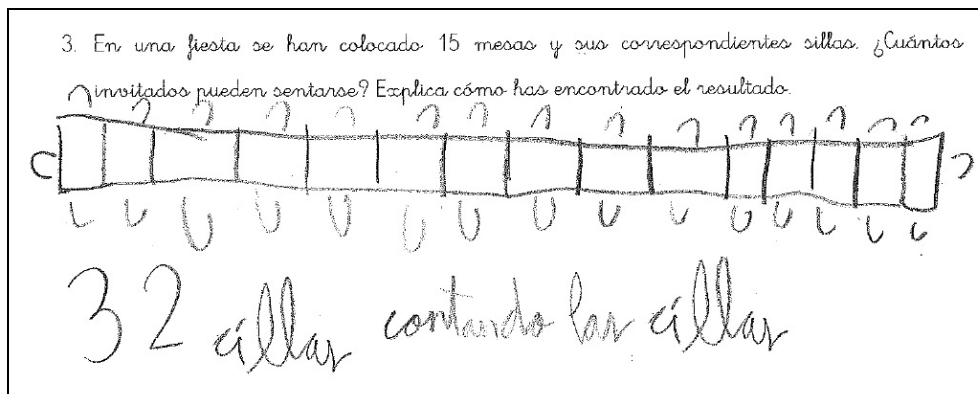 3. En una fiesta se han colocado 15 mesas y sus correspondientes sillas. ¿Cuántos
invitados pueden sentarse? Explica cómo has encontrado el resultado.
32 cillas contando las cillas